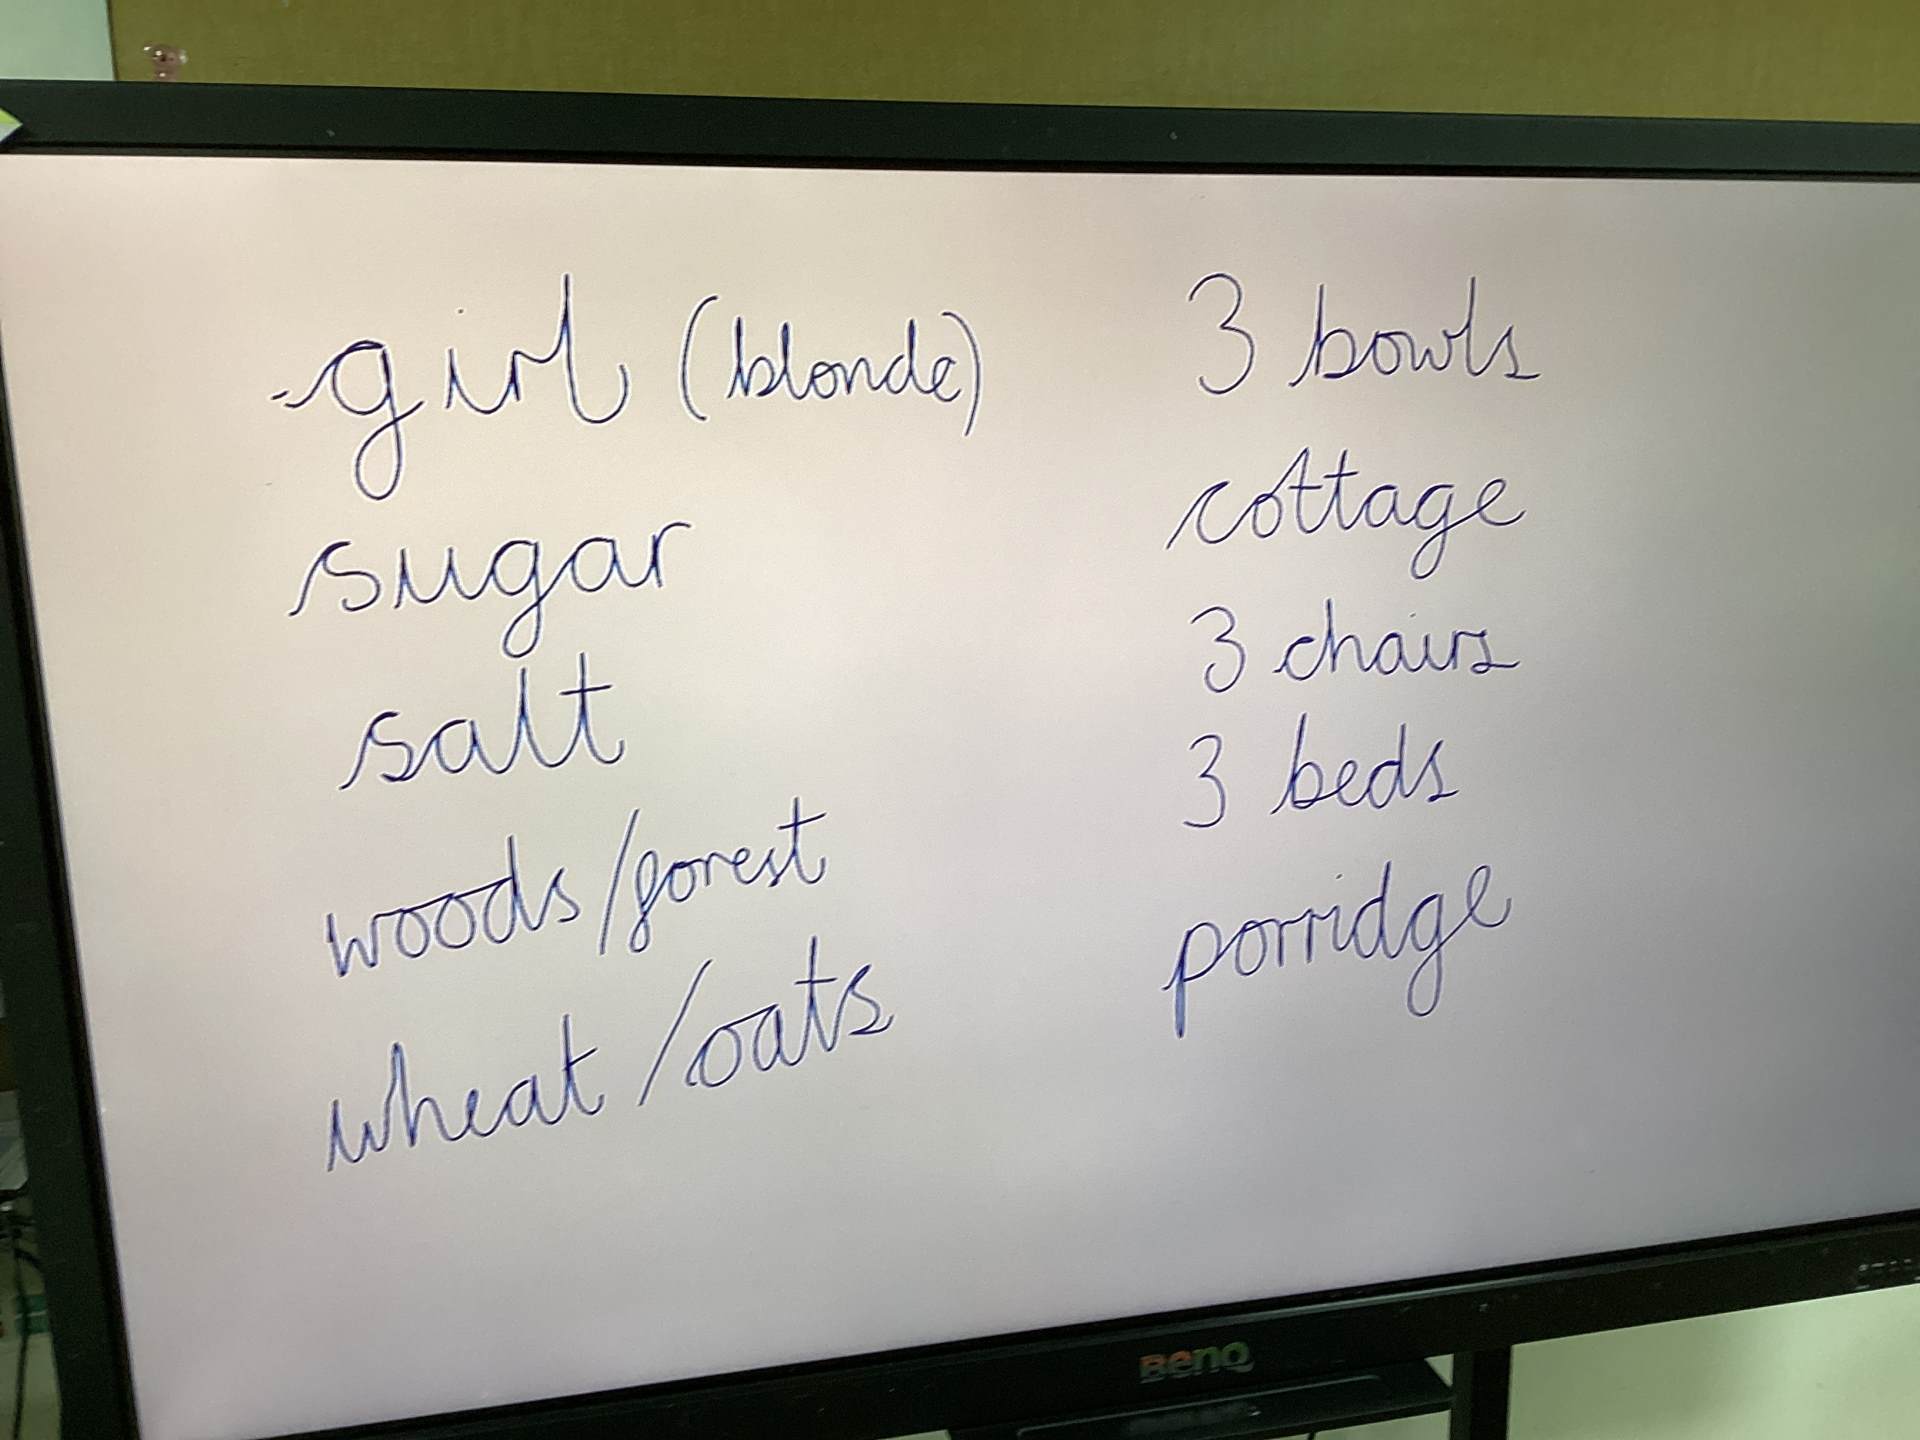 girl (blonde)
sugar
salt
woods/forest
wheat/oats
3 bowls
cottage
3 chairs
3 beds
porridge
BenQ